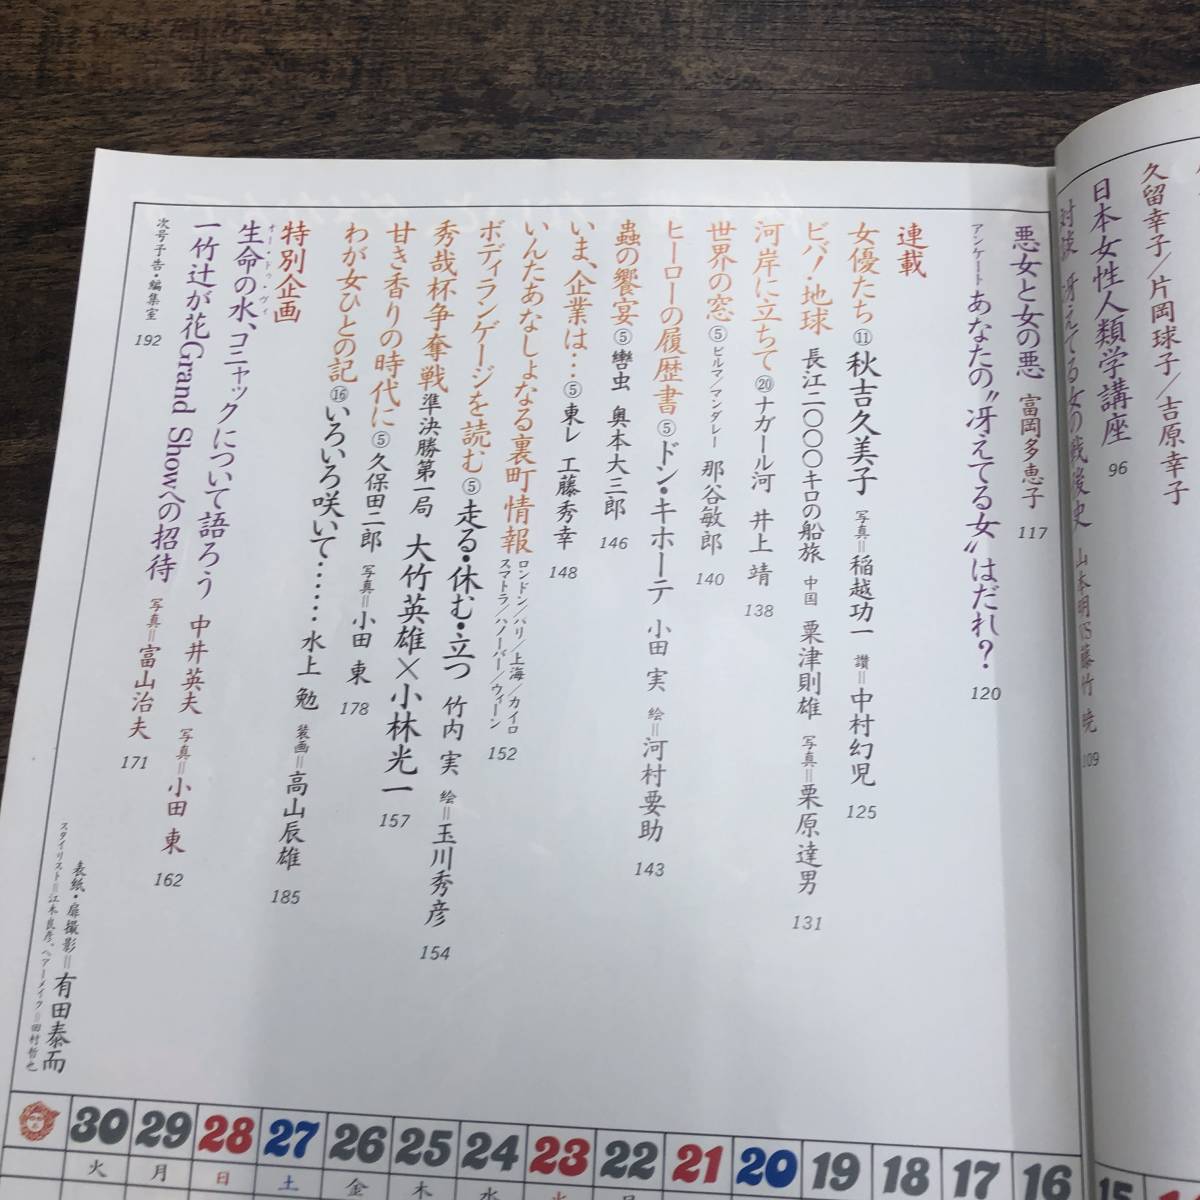 久留幸子／片岡球子／吉原幸子
日本女性人類学講座 96
対談 冴えてる女の戦後史 山本明VS藤竹 暁 109
悪女と女の悪 富岡多恵子 117
アンケート あなたの〝冴えてる女〟はだれ? 120
連載
女優たち⑪ 秋吉久美子 写真=稲越功一 讃=中村幻児 125
ビバ!地球 長江二〇〇〇キロの船旅 中国 粟津則雄 写真=栗原達男 131
河岸に立ちて⑳ナガール河 井上 靖 138
世界の窓⑤ビルマ/マンダレー 那谷敏郎 140
ヒーローの履歴書⑤ドン・キホーテ 小田 実 絵=河村要助 143
蟲の饗宴⑤轡虫 奥本大三郎 146
いま、企業は…⑤東レ 工藤秀幸 148
いんたあなしょなる裏町情報 ロンドン/パリ/上海/カイロ
スマトラ/ハノーバー/ウィーン 152
ボディランゲージを読む⑤ 走る・休む・立つ 竹内 実 絵=玉川秀彦 154
秀哉杯争奪戦 準決勝第一局 大竹英雄×小林光一 157
甘き香りの時代に⑤久保田二郎 写真=小田 東 178
わが女ひとの記⑯いろいろ咲いて…… 水上 勉 装画=高山辰雄 185
特別企画
生命の水、コニャックについて語ろう 中井英夫 写真=小田 東 162
オー・ドゥ・ヴィ
一竹辻が花Grand Showへの招待 写真=富山治夫 171
次号予告・編集室 192
表紙・扉撮影=有田泰而
スタイリスト=江木良彦、ヘアーメイク=田村哲也
30 29 28 27 26 25 24 23 22 21 20 19 18 17 16 15
火 月 日 土 金 木 水 火 月